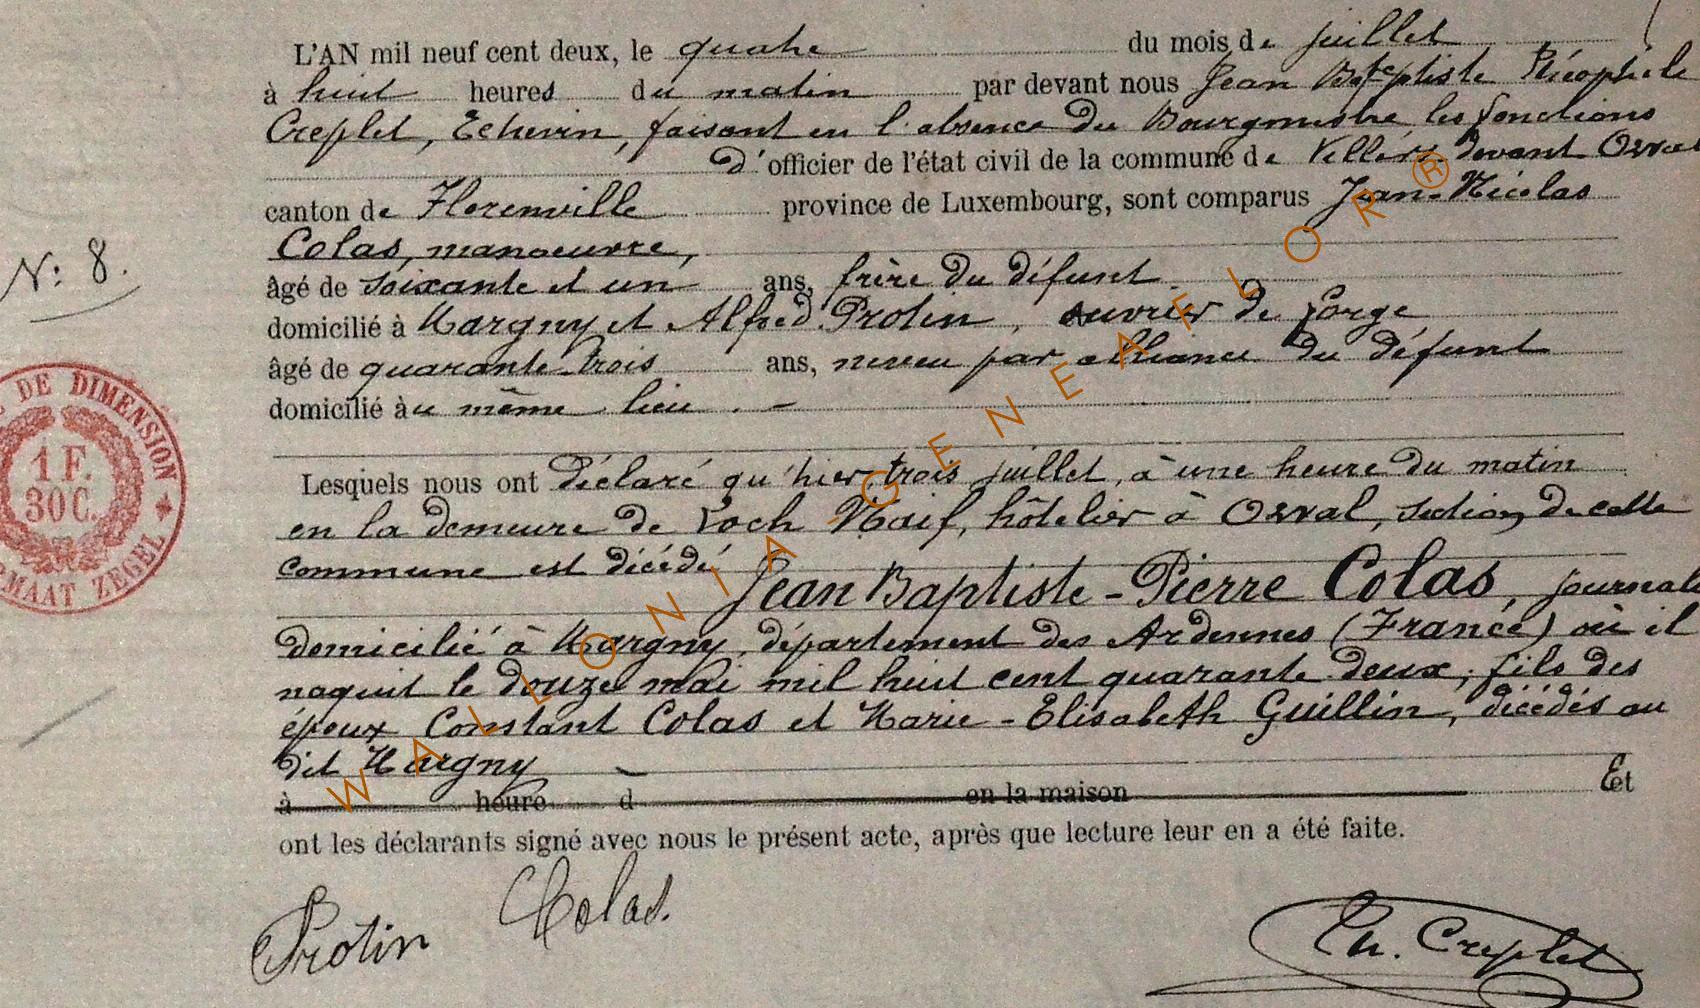 L'AN mil neuf cent deux, le quatre du mois de juillet
à huit heures du matin par devant nous Jean Bte Théophile
Creplet, Echevin, faisant en l'absence du Bourgmestre, les fonctions
d'officier de l'état civil de la commune de Villers devant Orval
canton de Florenville province de Luxembourg, sont comparus Jean-Nicolas
Colas, manoeuvre,
N: 8.
âgé de soixante et un ans, frère du défunt
domicilié à Margny et Alfred Protin, ouvrier de forge
âgé de quarante trois ans, neveu par alliance du défunt
domicilié au même lieu. -
DE DIMENSION
1 F.
30 C.
MAAT ZEGEL
Lesquels nous ont déclaré qu'hier, trois juillet, à une heure du matin
en la demeure de hôtelier à Orval, section de cette
commune est décédé Jean Baptiste-Pierre Colas, journal
domicilié à Margny, département des Ardennes (France) où il
naquit le douze mai mil huit cent quarante deux, fils des
époux Constant Colas et Marie-Elisabeth Guillin, décédés au
dit Margny
à heure d en la maison Et
ont les déclarants signé avec nous le présent acte, après que lecture leur en a été faite.
Protin Colas. Th. Creplet
WALLONIA-GENEAFLOR®